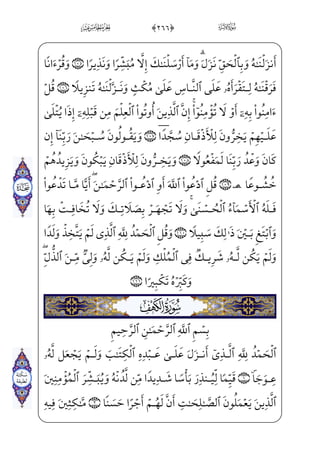 ﴿٢٦٦﴾
أَنزَلْنَٰهُ وَبِٱلْحَقِّ نَزَلَ ۗ وَمَآ أَرْسَلْنَٰكَ إِلَّا مُبَشِّرًا وَنَذِيرًا وَقُرْءَانًا
فَرَقْنَٰهُ لِتَقْرَأَهُۥ عَلَى ٱلنَّاسِ عَلَىٰ مُكْثٍ وَنَزَّلْنَٰهُ تَنزِيلًا قُلْ
ءَامِنُوا۟ بِهِۦٓ أَوْ لَا تُؤْمِنُوٓا۟ ۚ إِنَّ ٱلَّذِينَ أُوتُوا۟ ٱلْعِلْمَ مِن قَبْلِهِۦٓ إِذَا يُتْلَىٰ
عَلَيْهِمْ يَخِرُّونَ لِلْأَذْقَانِ سُجَّدًا وَيَقُولُونَ سُبْحَٰنَ رَبِّنَآ إِن
كَانَ وَعْدُ رَبِّنَا لَمَفْعُولًا وَيَخِرُّونَ لِلْأَذْقَانِ يَبْكُونَ وَيَزِيدُهُمْ
خُشُوعًا قُلِ ٱدْعُوا۟ ٱللَّهَ أَوِ ٱدْعُوا۟ ٱلرَّحْمَٰنَ ۖ أَيًّا مَّا تَدْعُوا۟
فَلَهُ ٱلْأَسْمَآءُ ٱلْحُسْنَىٰ ۚ وَلَا تَجْهَرْ بِصَلَاتِكَ وَلَا تُخَافِتْ بِهَا
وَٱبْتَغِ بَيْنَ ذَٰلِكَ سَبِيلًا وَقُلِ ٱلْحَمْدُ لِلَّهِ ٱلَّذِى لَمْ يَتَّخِذْ وَلَدًا
وَلَمْ يَكُن لَّهُۥ شَرِيكٌ فِى ٱلْمُلْكِ وَلَمْ يَكُن لَّهُۥ وَلِىٌّ مِّنَ ٱلذُّلِّ ۖ
وَكَبِّرْهُ تَكْبِيرًۢا
سُورَةُ الكَهْفِ
بِسْمِ ٱللَّهِ ٱلرَّحْمَٰنِ ٱلرَّحِيمِ
ٱلْحَمْدُ لِلَّهِ ٱلَّذِىٓ أَنزَلَ عَلَىٰ عَبْدِهِ ٱلْكِتَٰبَ وَلَمْ يَجْعَل لَّهُۥ
عِوَجَا قَيِّمًا لِّيُنذِرَ بَأْسًا شَدِيدًا مِّن لَّدُنْهُ وَيُبَشِّرَ ٱلْمُؤْمِنِينَ
ٱلَّذِينَ يَعْمَلُونَ ٱلصَّٰلِحَٰتِ أَنَّ لَهُمْ أَجْرًا حَسَنًا مَّٰكِثِينَ فِيهِ